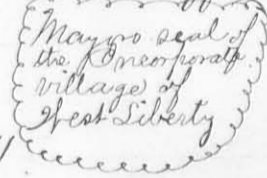 Mayors seal of
the Incorporate
village of
West Liberty